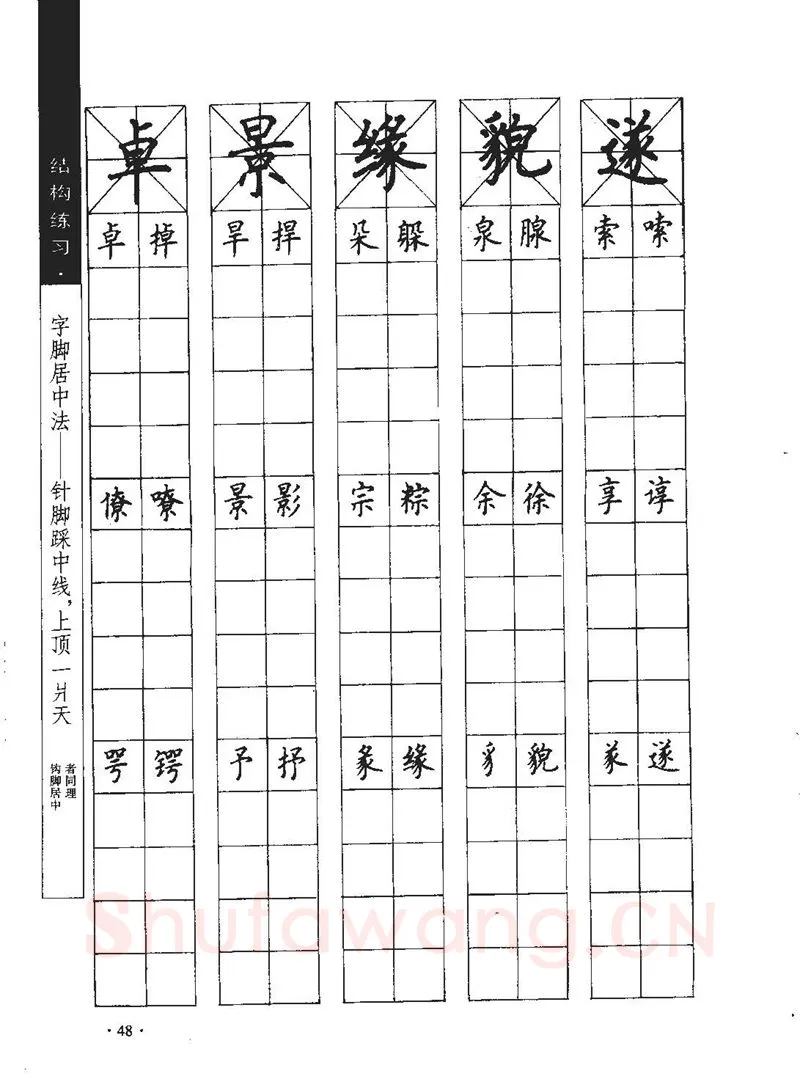 结构练习·
字脚居中法——针脚踩中线，上顶一爿天
钩脚居中
者同理
卓 景 缘 貌 遂
卓 掉 旱 捍 朵 躲 泉 腺 索 嗦
僚 嘹 景 影 宗 粽 余 徐 享 谆
咢 锷 予 抒 彖 缘 豸 貌 㒸 遂
Shufawang.CN
·48·